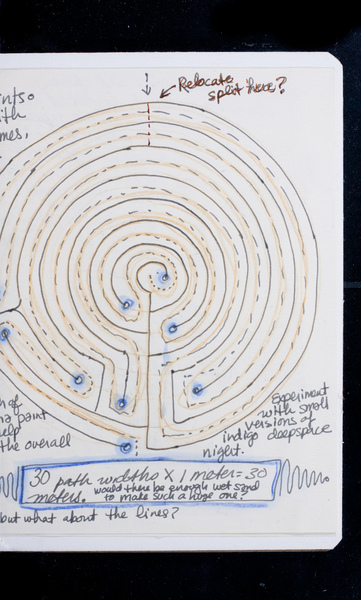 Relocate
split here?
ints o
ith
mes,
of
paint
elp
the overall
Experiment
with small
versions of
indigo deepspace
night.
30 path widths X 1 meter = 30
meters. would there be enough wet sand
to make such a huge one?
but what about the lines?